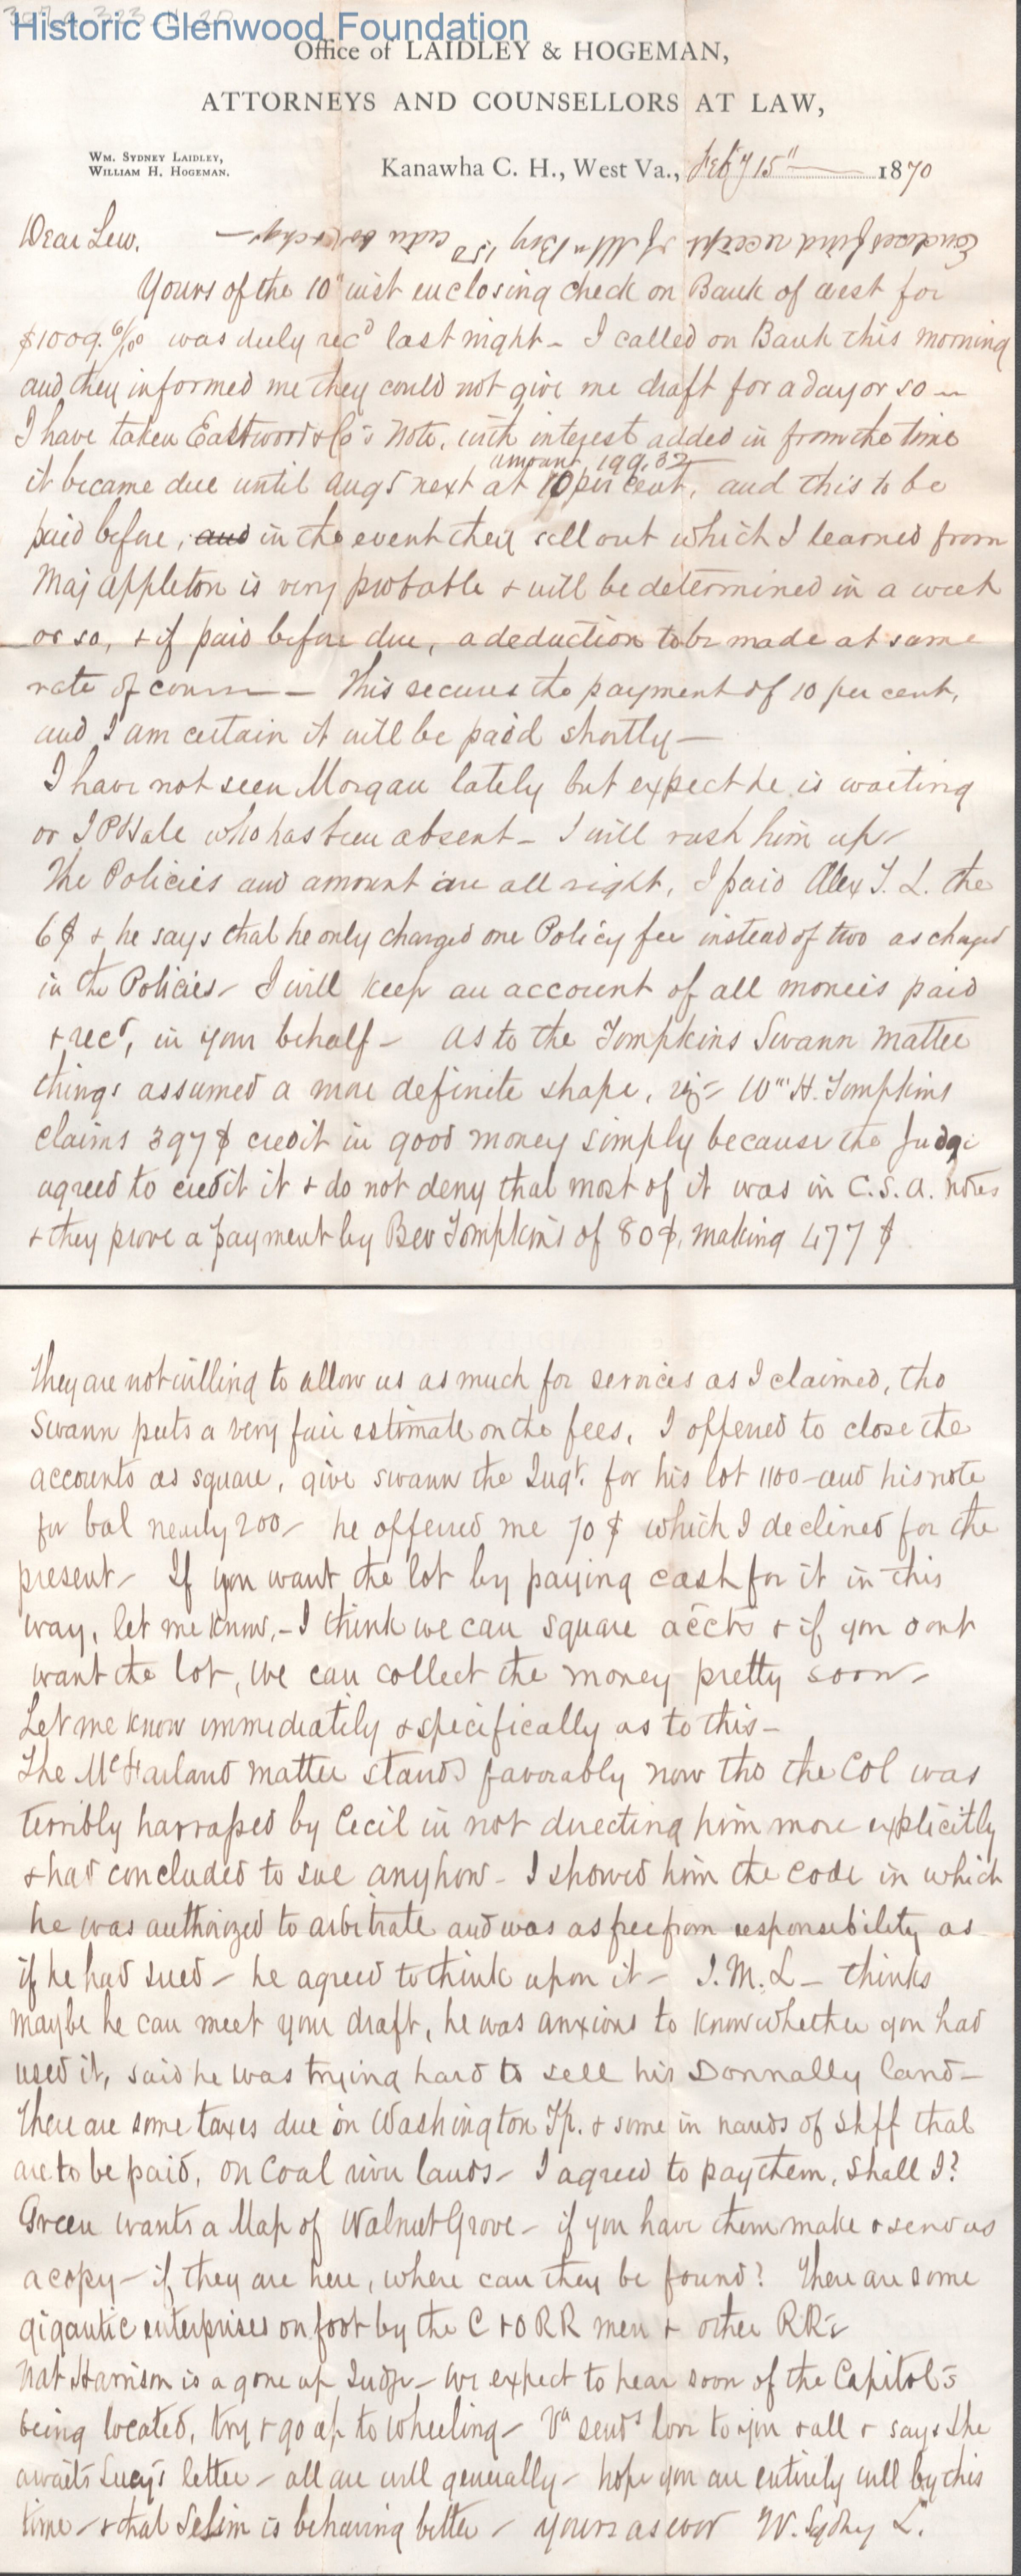 Historic Glenwood Foundation
Office of LAIDLEY & HOGEMAN,
ATTORNEYS AND COUNSELLORS AT LAW,
WM. SYDNEY LAIDLEY,
WILLIAM H. HOGEMAN.
Kanawha C. H., West Va., Feby 15" 1870
Enclosed find receipt of Wm
Dear Lew.
Yours of the 10" inst enclosing check on Bank of west for
$1009. was duly recd last night - I called on Bank this morning
and they informed me they could not give me draft for a day or so -
I have taken Eastwood & Co's Note, with interest added in from the time
amount 199.32
it became due until Aug 5 next at 10 per cent, and this to be
paid before, and in the event they sell out which I learned from
Maj Appleton is very probable & will be determined in a week
or so, & if paid before due, a deduction to be made at same
rate of course - This secures the payment of 10 per cent,
and I am certain it will be paid shortly -
I have not seen Morgan lately but expect he is waiting
or J P Hale who has been absent - I will rush him up -
The Policies and amount are all right, I paid Alex T. L. the
6$ & he says that he only charged one Policy fee instead of two as charged
in the Policies - I will keep an account of all moneis paid
& recd, in your behalf - As to the Tompkins Swann matter
things assumed a more definite shape, viz - Wm H. Tompkins
claims 397$ credit in good money simply because the Judge
agreed to credit it & do not deny that most of it was in C.S.A. notes
& they prove a payment by Bev Tompkins of 80$, making 477$
They are not willing to allow us as much for services as I claimed, tho
Swann puts a very fair estimate on the fees, I offered to close the
accounts as square, give Swann the Judgt. for his lot 1100 - and his note
for bal nearly 200 - he offered me 70$ which I declined for the
present - If you want the lot by paying cash for it in this
way, let me know, - I think we can square accts & if you dont
want the lot, we can collect the money pretty soon -
Let me know immediately & specifically as to this -
The McFarland matter stands favorably now tho the Col was
terribly harrassed by Cecil in not directing him more explicitly
& had concluded to sue anyhow - I showed him the code in which
he was authorized to arbitrate and was as free from responsibility as
if he had sued - he agreed to think upon it - J. M. L - thinks
maybe he can meet your draft, he was anxious to know whether you had
used it, said he was trying hard to sell his Donnally land -
There are some taxes due in Washington Tp. & some in hands of Shff that
are to be paid, on Coal river lands - I agreed to pay them, Shall I?
Green wants a Map of Walnut Grove - if you have them make & send us
a copy - if they are here, where can they be found? There are some
gigantic enterprises on foot by the C & O R R men & other RR's
Nat Harrison is a gone up Judge - we expect to hear soon of the Capitol's
being located, try & go up to Wheeling - Va sends love to you & all & says she
awaits Lucy's letter - all are well generally - hope you are entirely well by this
time - & that Selim is behaving better - yours as ever W. Sydney L.